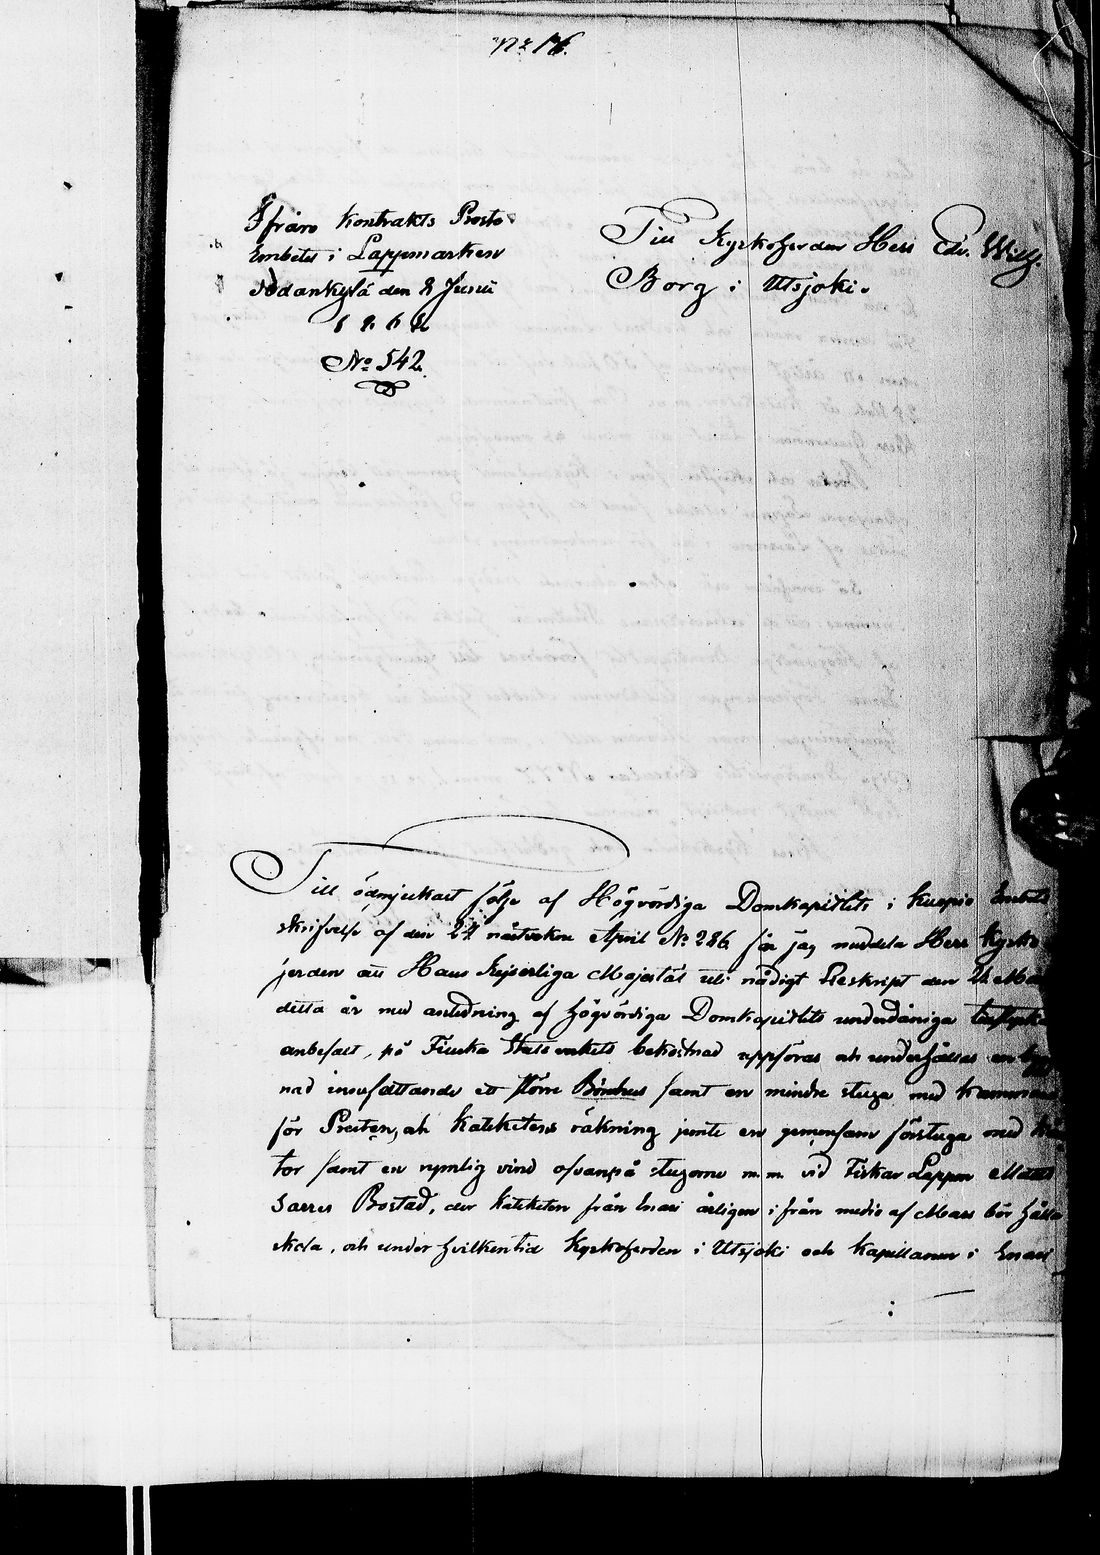 No 16.
Ifrån Kontrakts Prosts
Embetet i Lappmarken
Sodankylä den 8 Junii
186
No 542.
Till Kyrkoherden Herr Edv. Wilh.
Borg i Utsjoki.
Till ödmjukast följe af Högvördiga Domkapitlets i Kuopio Embets
skrifvelse af den 24 nästvekne April No 286 får jag meddela Herr Kyrko
herden att Hans Kejserliga Majestät uti nådigt Reskript den
detta år med anledning af Högvördiga Domkapitlets underdåniga
anbefalt, på Finska Statsverkets bekostnad uppföras och underhållas en
nad innefattande ett större Bönehus samt en mindre stuga med kammare
för Presten, och Kateketens räkning jemte en gemensam förstuga med
tor samt en rymlig vind ofvanpå stugorne m. m. vid Fiskar Lappen Mattes
Sarres Bostad, der Kateketen från Enari årligen ifrån medio af Mars bör hålla
skola, och under hvilken tid Kyrkoherden i Utsjoki och Kapellanen i Enari